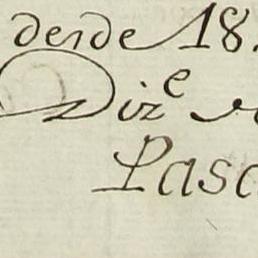 desde 18.
Diz^e
Pasc